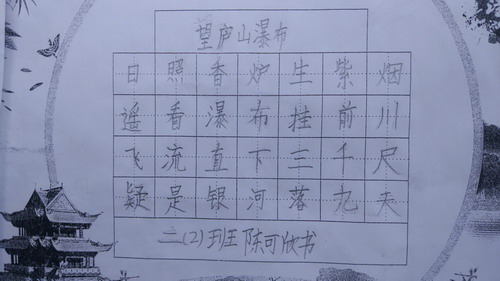 望庐山瀑布
日照香炉生紫烟
遥看瀑布挂前川
飞流直下三千尺
疑是银河落九天
二(2)班陈可欣书